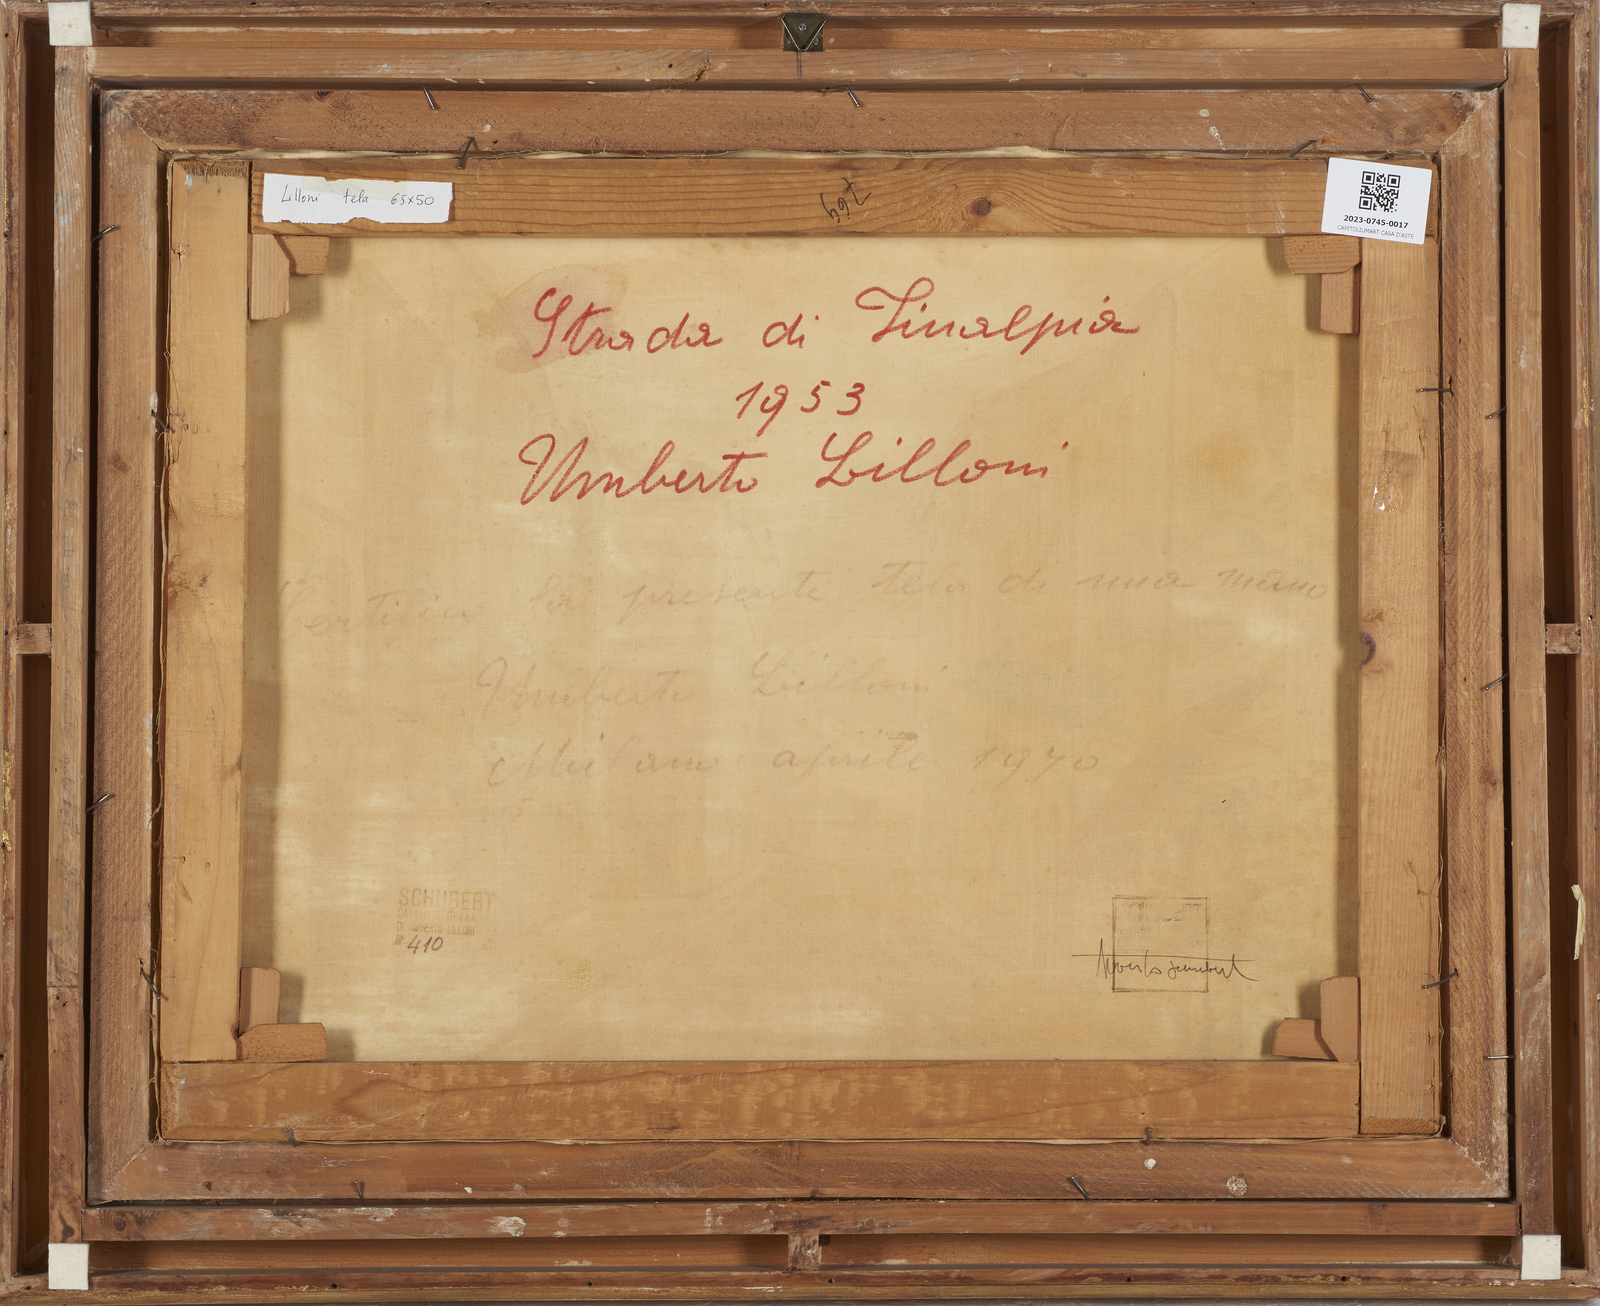 Lilloni tela 65x50
769
2023-0745-0017
CAPITOLIUMART CASA D'ASTE
Strada di Finalpia
1953
Umberto Lilloni
la presente tela di mia mano
Umberto Lilloni
Milano aprile 1970
SCHUBERT
DI UMBERTO LILLONI
410